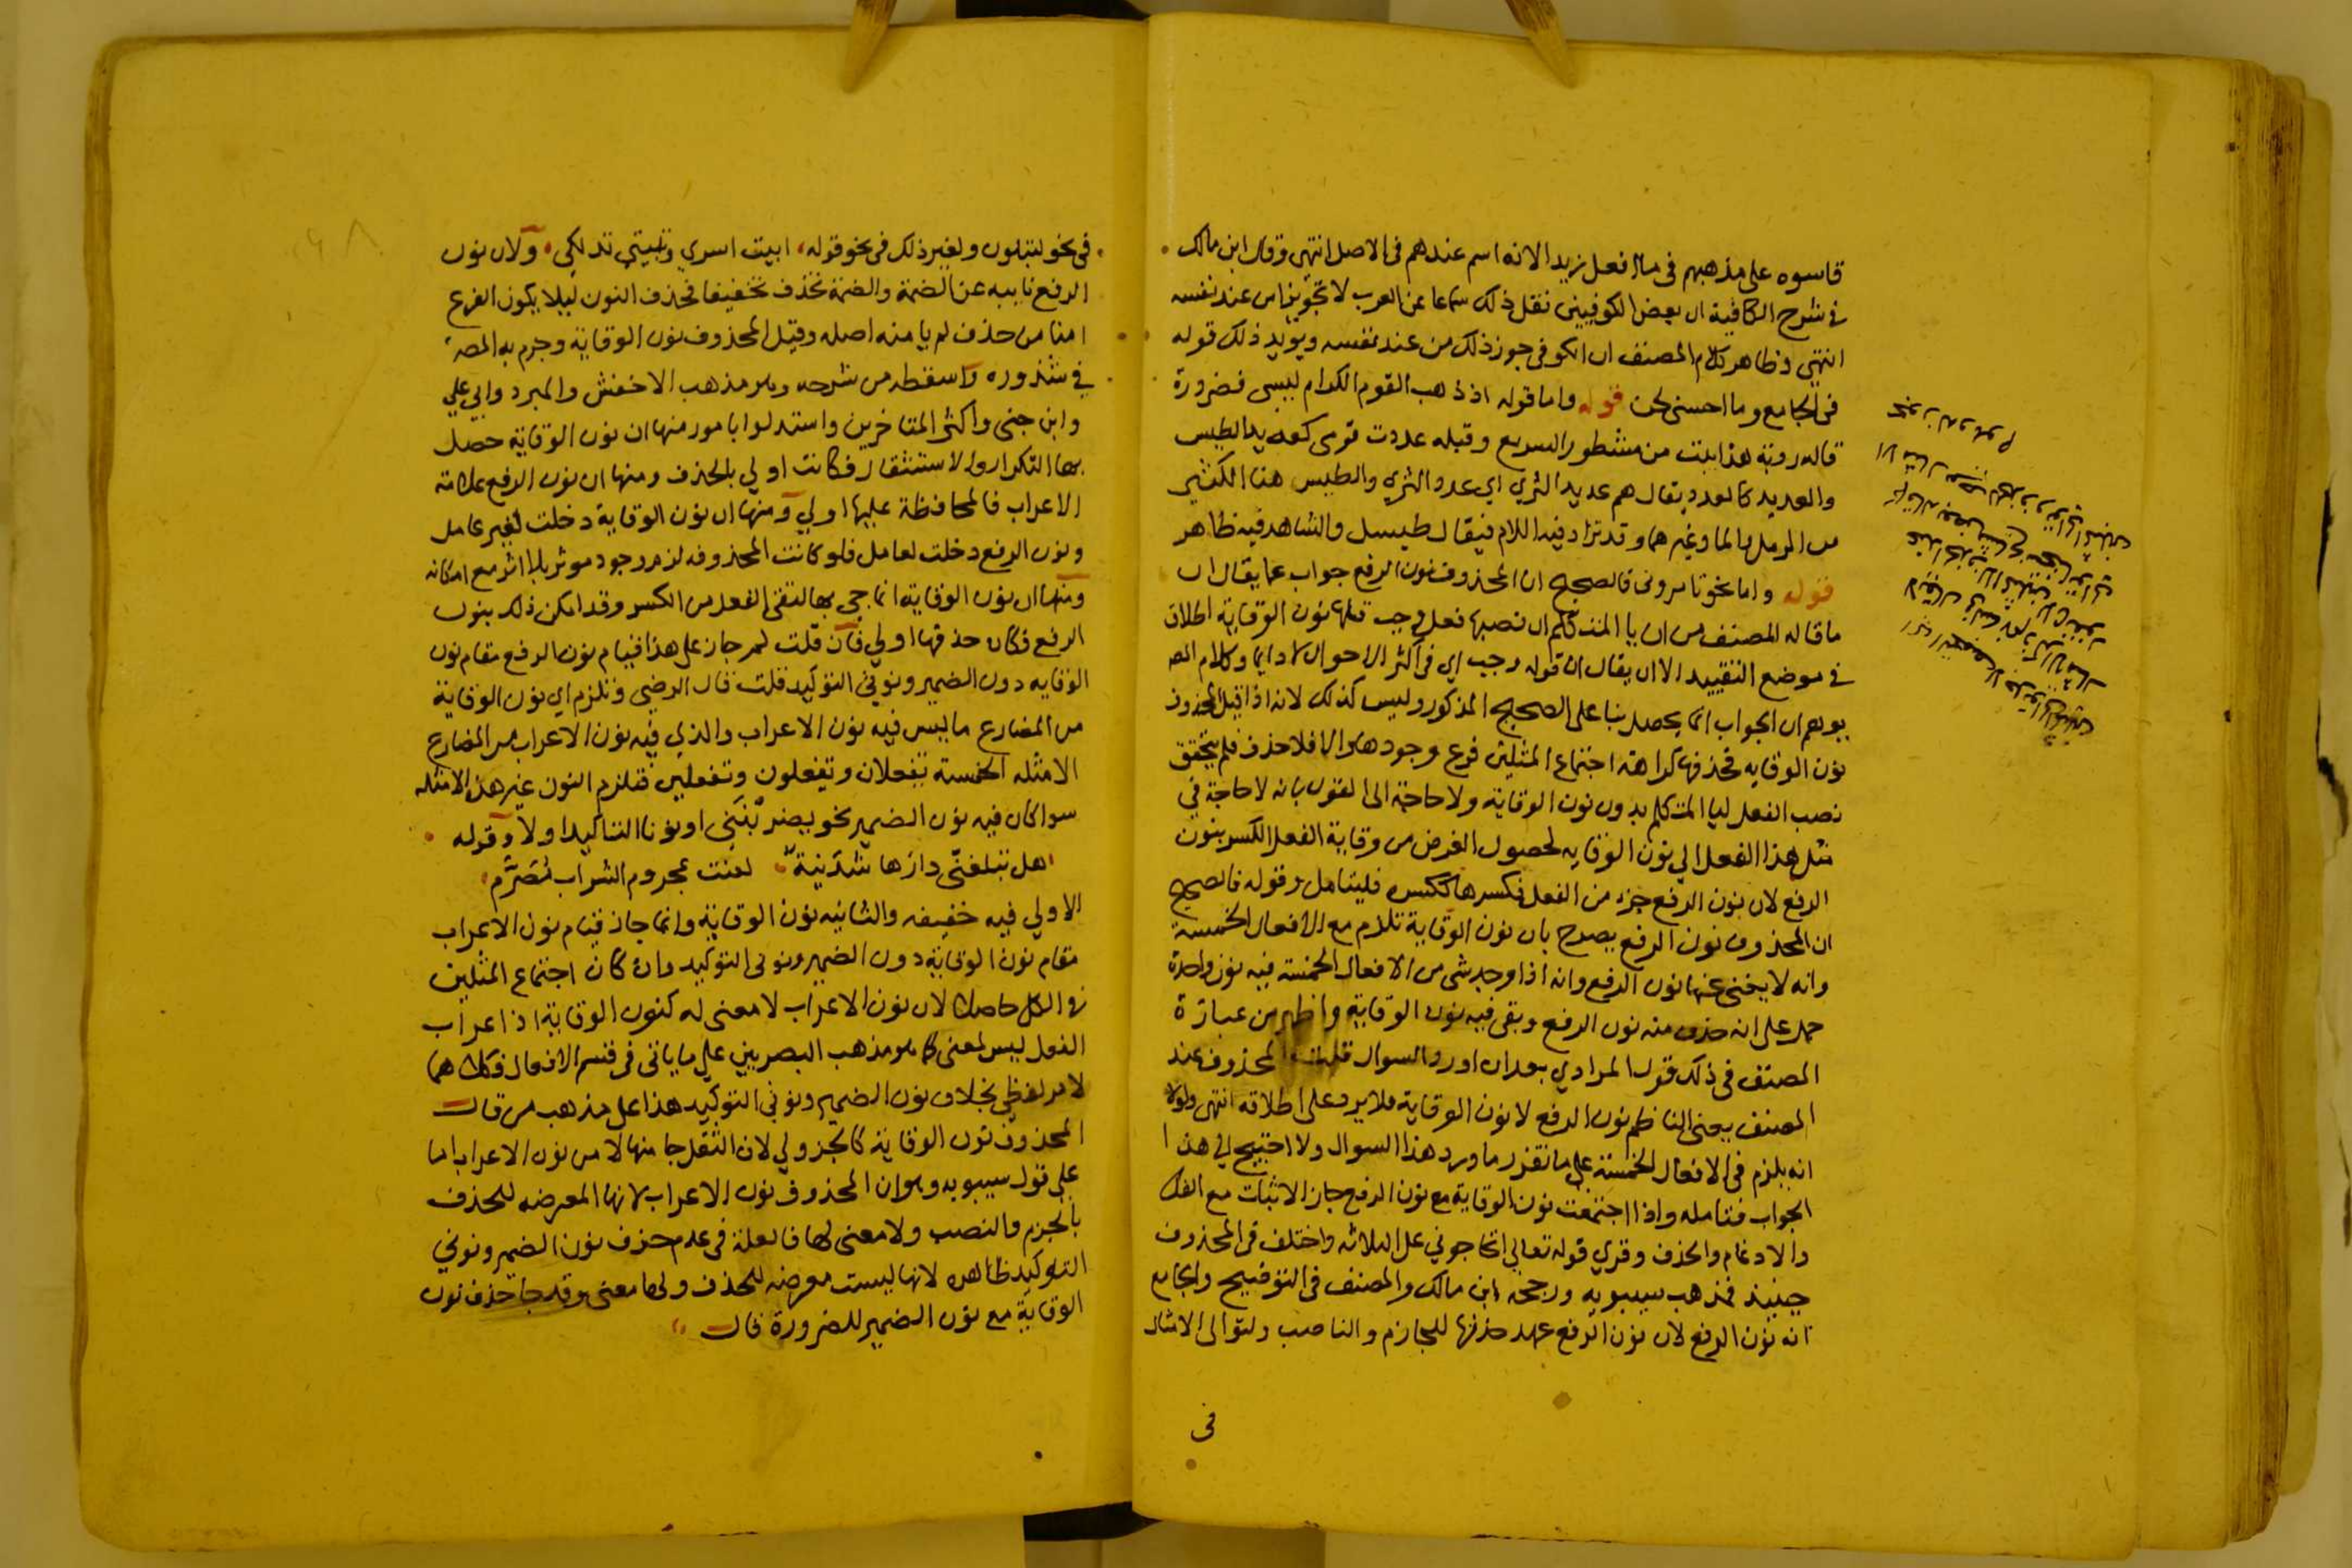 قاسوه على مذهبهم فى ما افعل زيدا لانه اسم عندهم فى الاصل انتهى وقال ابن مالك
فى شرح الكافية ان بعض الكوفيين نقل ذلك سماعا عن العرب لا تجويزا من عند نفسه
انتهى وظاهر كلام المصنف ان الكوفى جوز ذلك من عند نفسه ويؤيد ذلك قوله
فى الجامع وما احسنى لحن قوله واما قوله اذ ذهب القوم الكرام ليسى فضرورة
قاله روبة هذا بيت من مشطور السريع وقبله عددت قومى كعديد الطيس
والعديد كالعدد يقال هم عديد الثرى اى عدد الثرى والطيس هنا الكثير
من الرمل والما وغيرهما وقد تزاد فيه اللام فيقال طيسل والشاهد فيه ظاهر
قوله واما نحو تامرونى فالصحيح ان المحذوف نون الرفع جواب عما يقال ان
ما قاله المصنف من ان يا المتكلم ان نصبها فعل وجب قبلها نون الوقاية اطلاق
فى موضع التقييد الا ان يقال ان قوله وجب اى فى اكثر الاحوال لا دايما وكلام المصـ
يوهم ان الجواب انما يحصل بنا على الصحيح المذكور وليس كذلك لانه اذا قيل المحذوف
نون الوقايه فحذفها كراهة اجتماع المثلين فرع وجودها والا فلا حذف فلم يتحقق
نصب الفعل ليا المتكلم بدون نون الوقاية ولا حاجة الى القول بانه لا حاجة فى
مثل هذا الفعل الى نون الوقايه لحصول الغرض من وقاية الفعل الكسر بنون
الرفع لان نون الرفع جزء من الفعل فكسرها ككسره فليتامل وقوله فالصحيح
ان المحذوف نون الرفع يصرح بان نون الوقاية تلزم مع الافعال الخمسة
وانه لا يغنى عنها نون الرفع وانه اذا وجد شى من الافعال الخمسة فيه نون واحدة
حمل على انه حذف منه نون الرفع وبقى فيه نون الوقاية واظهر من عبارة
المصنف فى ذلك قول المرادى بعد ان اورد السوال قلت المحذوف عند
المصنف يعنى الناظم نون الرفع لا نون الوقاية فلا يرد على اطلاقه انتهى ولولا
انه يلزم فى الافعال الخمسة على ما تقرر ما ورد هذا السوال ولا احتيج الى هذا
الجواب فتامله واذا اجتمعت نون الوقاية مع نون الرفع جاز الاثبات مع الفك
والادغام والحذف وقرى قوله تعالى اتحاجونى على الثلاثه واختلف فى المحذوف
حينيذ فمذهب سيبويه ورجحه ابن مالك والمصنف فى التوضيح والجامع
انه نون الرفع لان نون الرفع عهد حذفها للجازم والناصب ولتوالى الامثال
فى
فى نحو لتبلون ولغير ذلك فى نحو قوله ابيت اسرى وتبيتى تدلكى ولان نون
الرفع نايبه عن الضمة والضمة تحذف تخفيفا فحذف النون ليلا يكون الفرع
امنا من حذف لم يامنه اصله وقيل المحذوف نون الوقاية وجزم به المصـ
فى شذوره واسقطه من شرحه وهو مذهب الاخفش والمبرد وابى على
وابن جنى واكثر المتاخرين واستدلوا بامور منها ان نون الوقاية حصل
بها التكرار والاستثقال فكانت اولى بالحذف ومنها ان نون الرفع علامة
الاعراب فالمحافظة عليها اولى ومنها ان نون الوقاية دخلت لغير عامل
ونون الرفع دخلت لعامل فلو كانت المحذوفه لزم وجود موثر بلا اثر مع امكانه
ومنها ان نون الوقاية انما جى بها لتقى الفعل من الكسر وقد امكن ذلك بنون
الرفع فكان حذفها اولى فان قلت لم جاز على هذا قيام نون الرفع مقام نون
الوقايه دون الضمير ونونى التوكيد قلت قال الرضى وتلزم اى نون الوقاية
من المضارع ما ليس فيه نون الاعراب والذى فيه نون الاعراب من المضارع
الامثله الخمسة يفعلان وتفعلون وتفعلين فتلزم النون غير هذه الامثله
سوا كان فيه نون الضمير نحو يضربننى او نونا التاكيد او لا وقوله
هل تبلغنى دارها شدنية لعنت بمحروم الشراب مصرم
الاولى فيه خفيفه والثانيه نون الوقاية وانما جاز قيام نون الاعراب
مقام نون الوقاية دون الضمير ونونى التوكيد وان كان اجتماع المثلين
فى الكل حاصلا لان نون الاعراب لا معنى له كنون الوقاية اذ اعراب
الفعل ليس لمعنى كما هو مذهب البصريين على ما ياتى فى قسم الافعال فكلاهما
لامر لفظى بخلاف نون الضمير ونونى التوكيد هذا على مذهب من قال
المحذوف نون الوقاية كالجزولى لان الثقل جا منها لا من نون الاعراب اما
على قول سيبويه وهو ان المحذوف نون الاعراب لانها المعرضه للحذف
بالجزم والنصب ولا معنى لها فالعلة فى عدم حذف نون الضمير ونونى
التوكيد ظاهره لانها ليست معرضه للحذف ولها معنى وقد جا حذف نون
الوقاية مع نون الضمير للضرورة قال